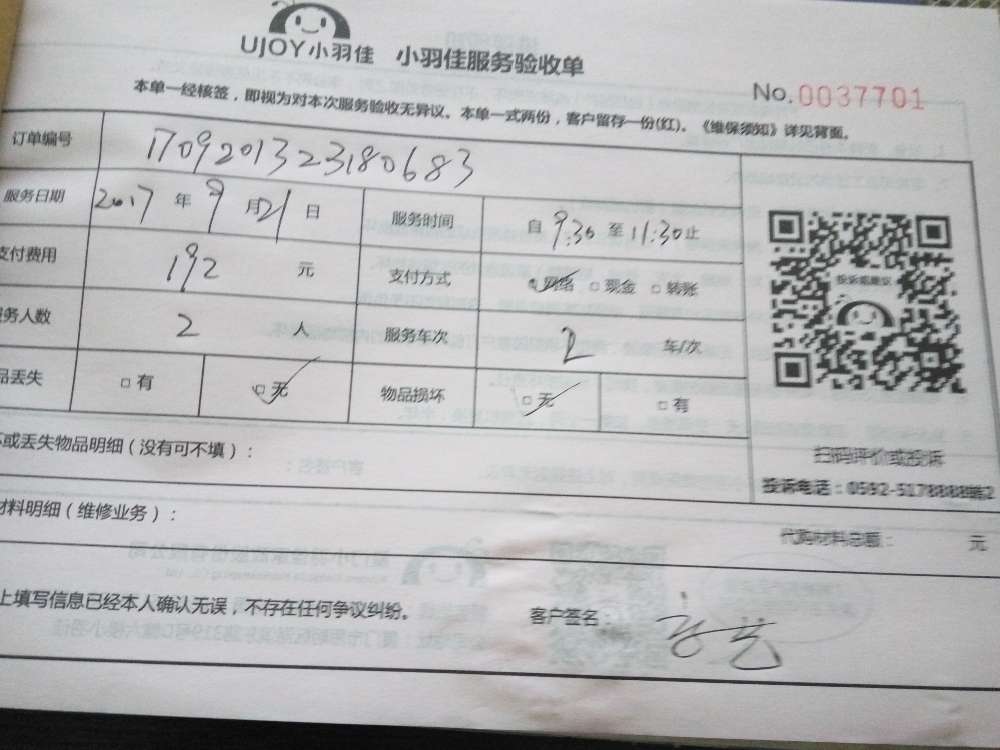 UJOY小羽佳 小羽佳服务验收单
No.0037701
本单一经核签，即视为对本次服务验收无异议。本单一式两份，客户留存一份(红)。《维保须知》详见背面。
订单编号 1709201323180683
服务日期 2017 年 9 月 21 日 服务时间 自 9:30 至 11:30 止
支付费用 192 元 支付方式 网络 □ 现金 □ 转账
务人数 2 人 服务车次 2 车/次
品丢失 □ 有 □ 无 物品损坏 □ 无 □ 有
投诉或建议
扫码评价或投诉
投诉电话：0592-5178888转2
或丢失物品明细（没有可不填）：
材料明细（维修业务）：
代购材料总额： 元
上填写信息已经本人确认无误，不存在任何争议纠纷。
客户签名：